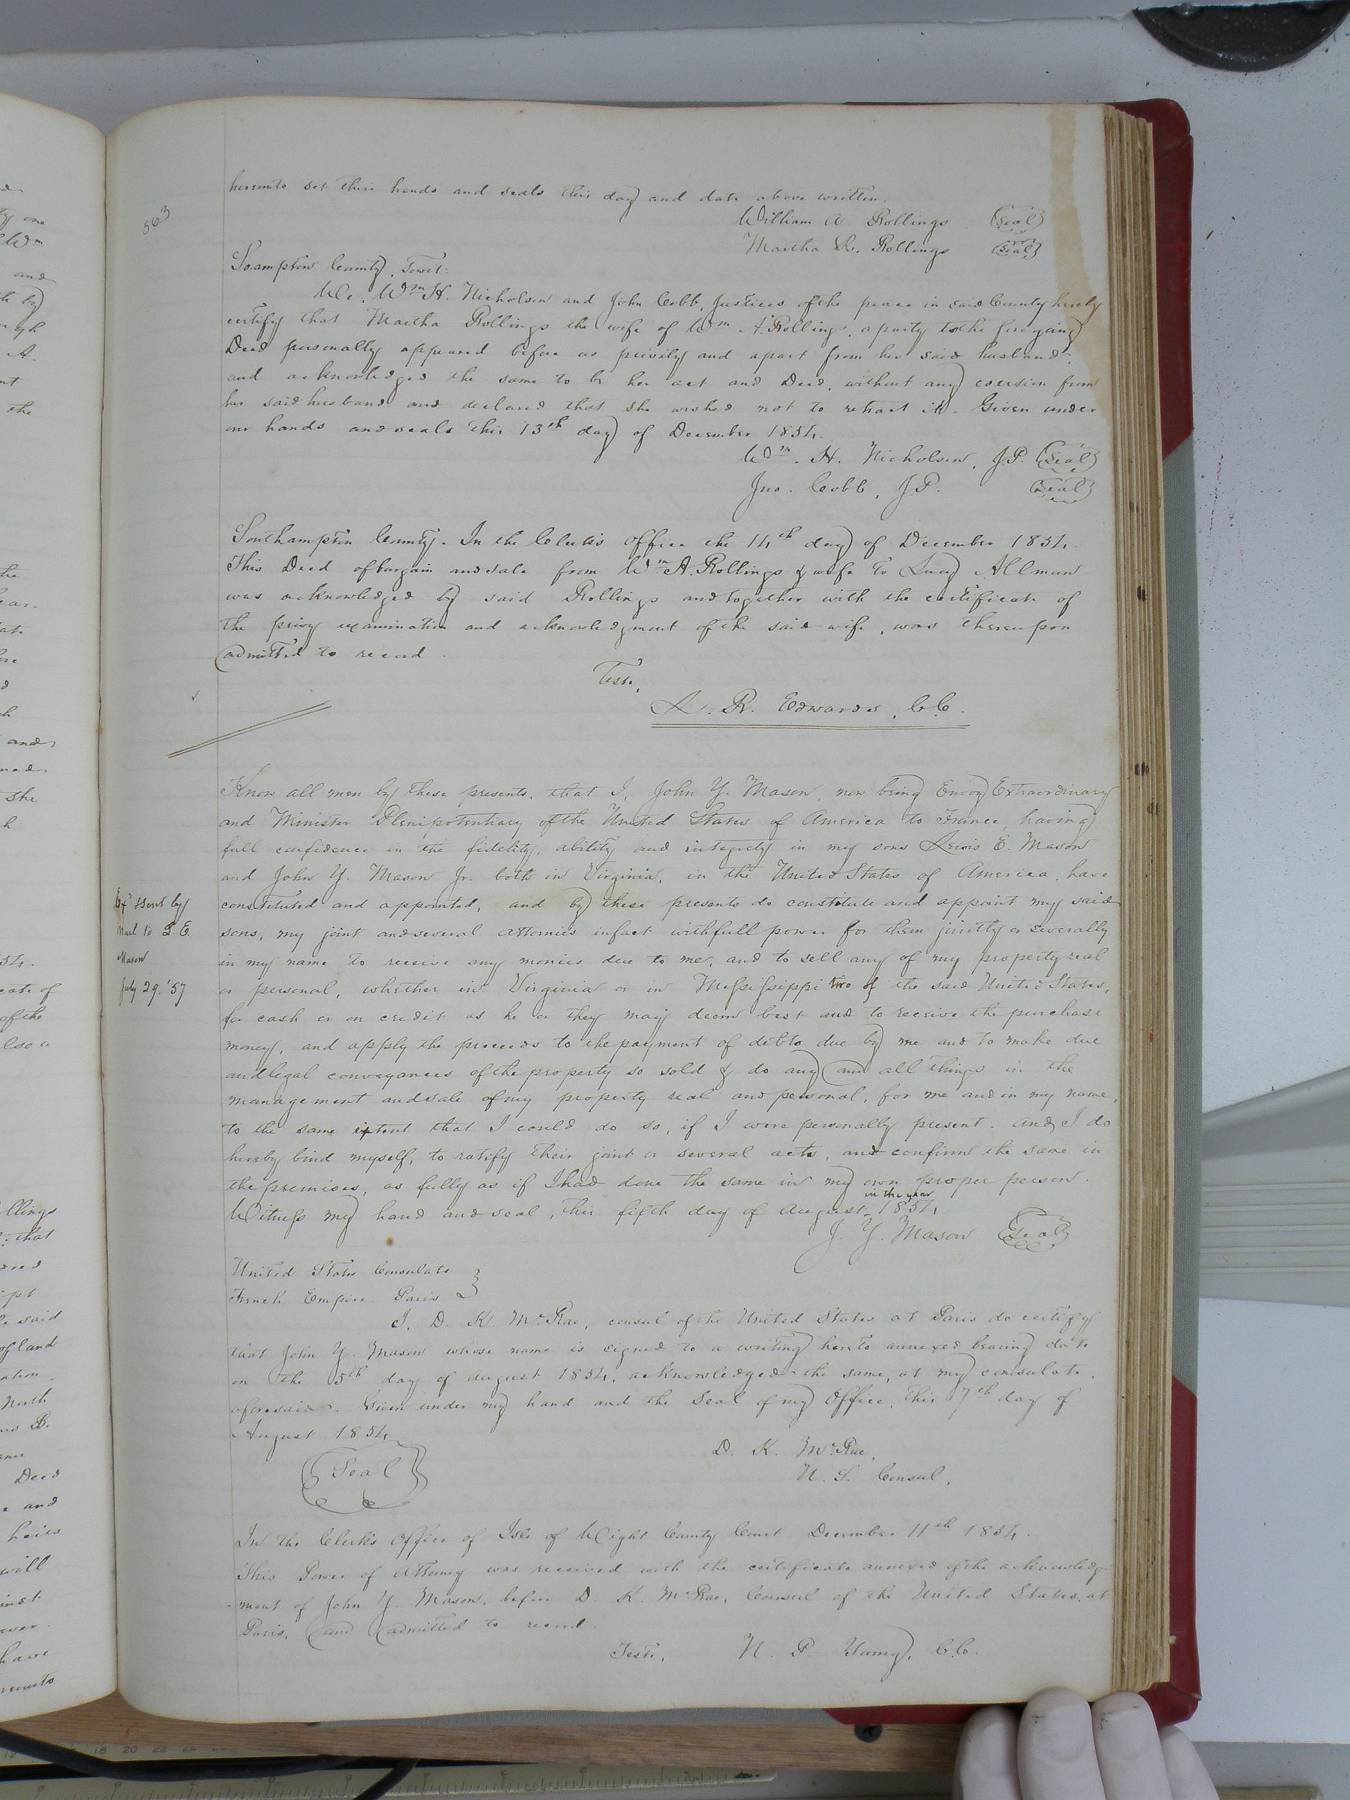 563
hereunto set their hands and seals this day and date above written.
William A Rollings (Seal)
Martha R. Rollings (Seal)
So.ampton County, Towit:
We, Wm H. Nicholson and John Cobb, Justices of the peace in said County hereby
certify that Martha Rollings the wife of Wm A. Rollings, a party to the foregoing
Deed personally appeared before us privily and apart from her said husband,
and acknowledged the same to be her act and Deed, without any coersion from
her said husband and declared that she wished not to retract it. Given under
our hands and seals this 13th day of December 1854.
Wm. H. Nicholson, J.P. (Seal)
Jno. Cobb, J.P. (Seal)
Southampton County. In the Clerk's Office the 14th day of December 1854.
This Deed of bargain and sale from Wm A. Rollings & wife to Lucy Allman
was acknowledged by said Rollings and together with the certificate of
the privy examination and acknowledgment of the said wife, was thereupon
admitted to record.
Teste,
L. R. Edwards, C.C.
Know all men by these presents, that I, John Y. Mason, now being Envoy Extraordinary
and Minister Plenipotentiary of the United States of America to France, having
full confidence in the fidelity, ability and integrety in my sons Lewis E. Mason
and John Y. Mason Jr. both in Virginia, in the United States of America, have
constituted and appointed, and by these presents do constitute and appoint my said
sons, my joint and several attornies in fact with full power for them jointly or severally
in my name to receive any monies due to me, and to sell any of my property real
or personal, whether in Virginia or in Mississippi two of the said United States,
for cash or on credit as he or they may deem best and to receive the purchase
money, and apply the proceeds to the payment of debts due by me and to make due
and legal conveyances of the property so sold & do any and all things in the
management and sale of my property real and personal, for me and in my name,
to the same extent that I could do so, if I were personally present. and I do
hereby bind myself, to ratify their joint or several acts, and confirm the same in
the premises, as fully as if I had done the same in my own proper person.
Witness my hand and seal, this fifth day of August in the year 1854,
J. Y. Mason (Seal)
Ex'd sent by
mail to L. E.
Mason
July 29. '57
United States Consulate
French Empire Paris
I, D. K. McRae, consul of the United States at Paris do certify
that John Y. Mason whose name is signed to a writing hereto annexed bearing date
on the 5th day of August 1854, acknowledged the same, at my consulate
aforesaid. Given under my hand and the Seal of my Office, this 7th day of
August 1854
(Seal)
D. K. McRae,
U. S. Consul,
In the Clerk's Office of Isle of Wight County Court December 11th 1854.
This Power of Attorney was received with the certificate annexed of the acknowledg-
ment of John Y. Mason, before D. K. McRae, Consul of the United States, at
Paris, and admitted to record.
Teste, N. P. Young, C.C.